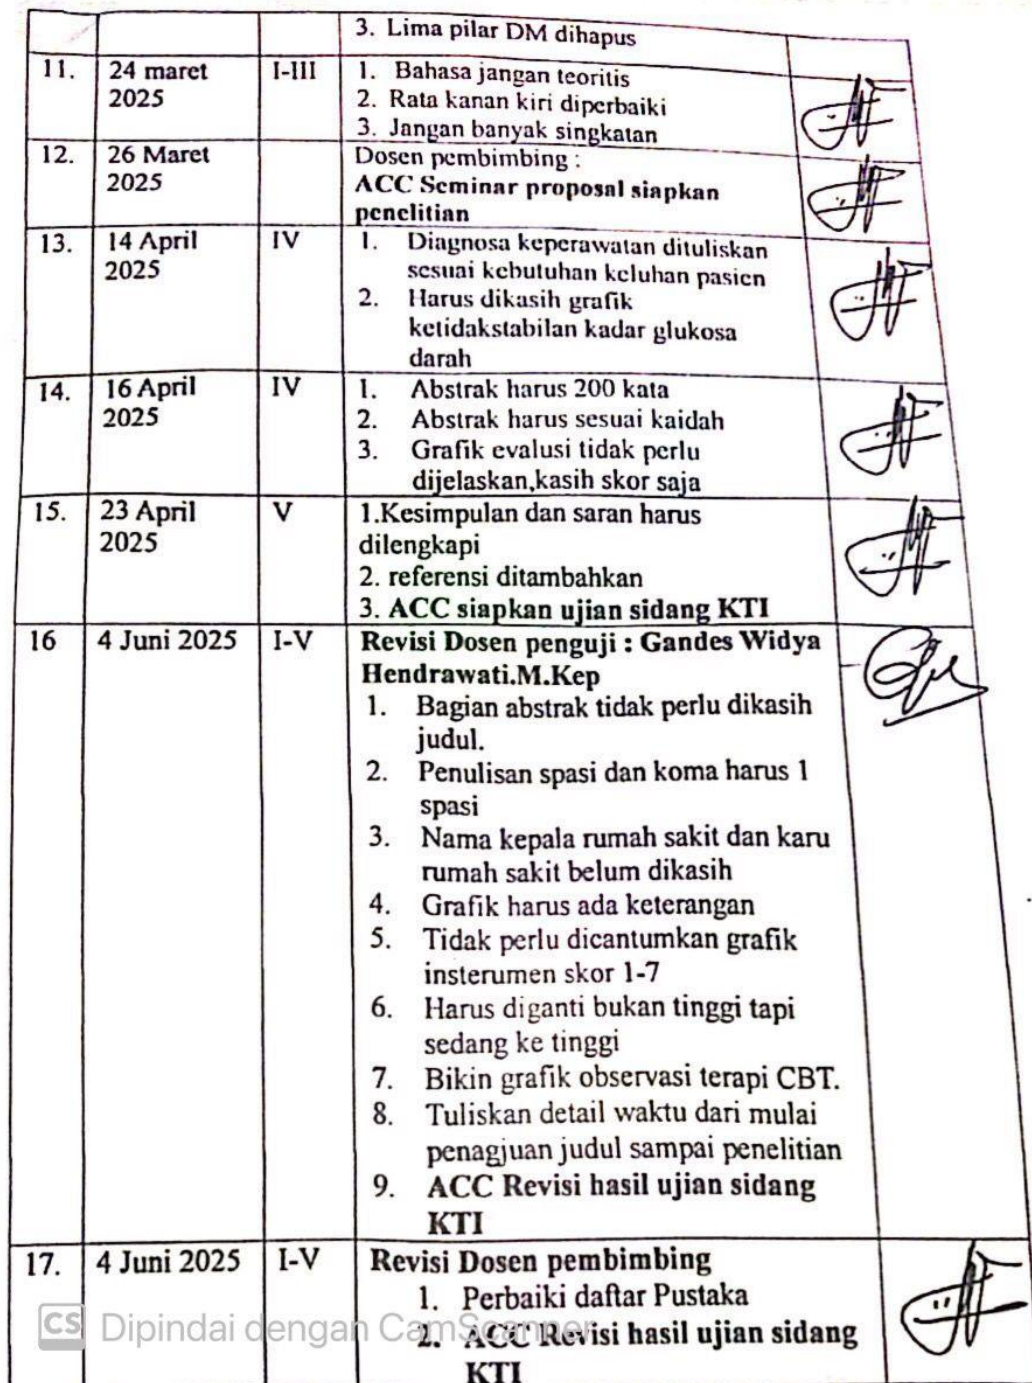 3. Lima pilar DM dihapus
11. 24 maret 2025 I-III 1. Bahasa jangan teoritis
2. Rata kanan kiri diperbaiki
3. Jangan banyak singkatan
12. 26 Maret 2025 Dosen pembimbing :
ACC Seminar proposal siapkan
penelitian
13. 14 April 2025 IV 1. Diagnosa keperawatan dituliskan
sesuai kebutuhan keluhan pasien
2. Harus dikasih grafik
ketidakstabilan kadar glukosa
darah
14. 16 April 2025 IV 1. Abstrak harus 200 kata
2. Abstrak harus sesuai kaidah
3. Grafik evalusi tidak perlu
dijelaskan,kasih skor saja
15. 23 April 2025 V 1.Kesimpulan dan saran harus
dilengkapi
2. referensi ditambahkan
3. ACC siapkan ujian sidang KTI
16 4 Juni 2025 I-V Revisi Dosen penguji : Gandes Widya
Hendrawati.M.Kep
1. Bagian abstrak tidak perlu dikasih
judul.
2. Penulisan spasi dan koma harus 1
spasi
3. Nama kepala rumah sakit dan karu
rumah sakit belum dikasih
4. Grafik harus ada keterangan
5. Tidak perlu dicantumkan grafik
insterumen skor 1-7
6. Harus diganti bukan tinggi tapi
sedang ke tinggi
7. Bikin grafik observasi terapi CBT.
8. Tuliskan detail waktu dari mulai
penagjuan judul sampai penelitian
9. ACC Revisi hasil ujian sidang
KTI
17. 4 Juni 2025 I-V Revisi Dosen pembimbing
1. Perbaiki daftar Pustaka
2. ACC Revisi hasil ujian sidang
KTI
CS Dipindai dengan CamScanner